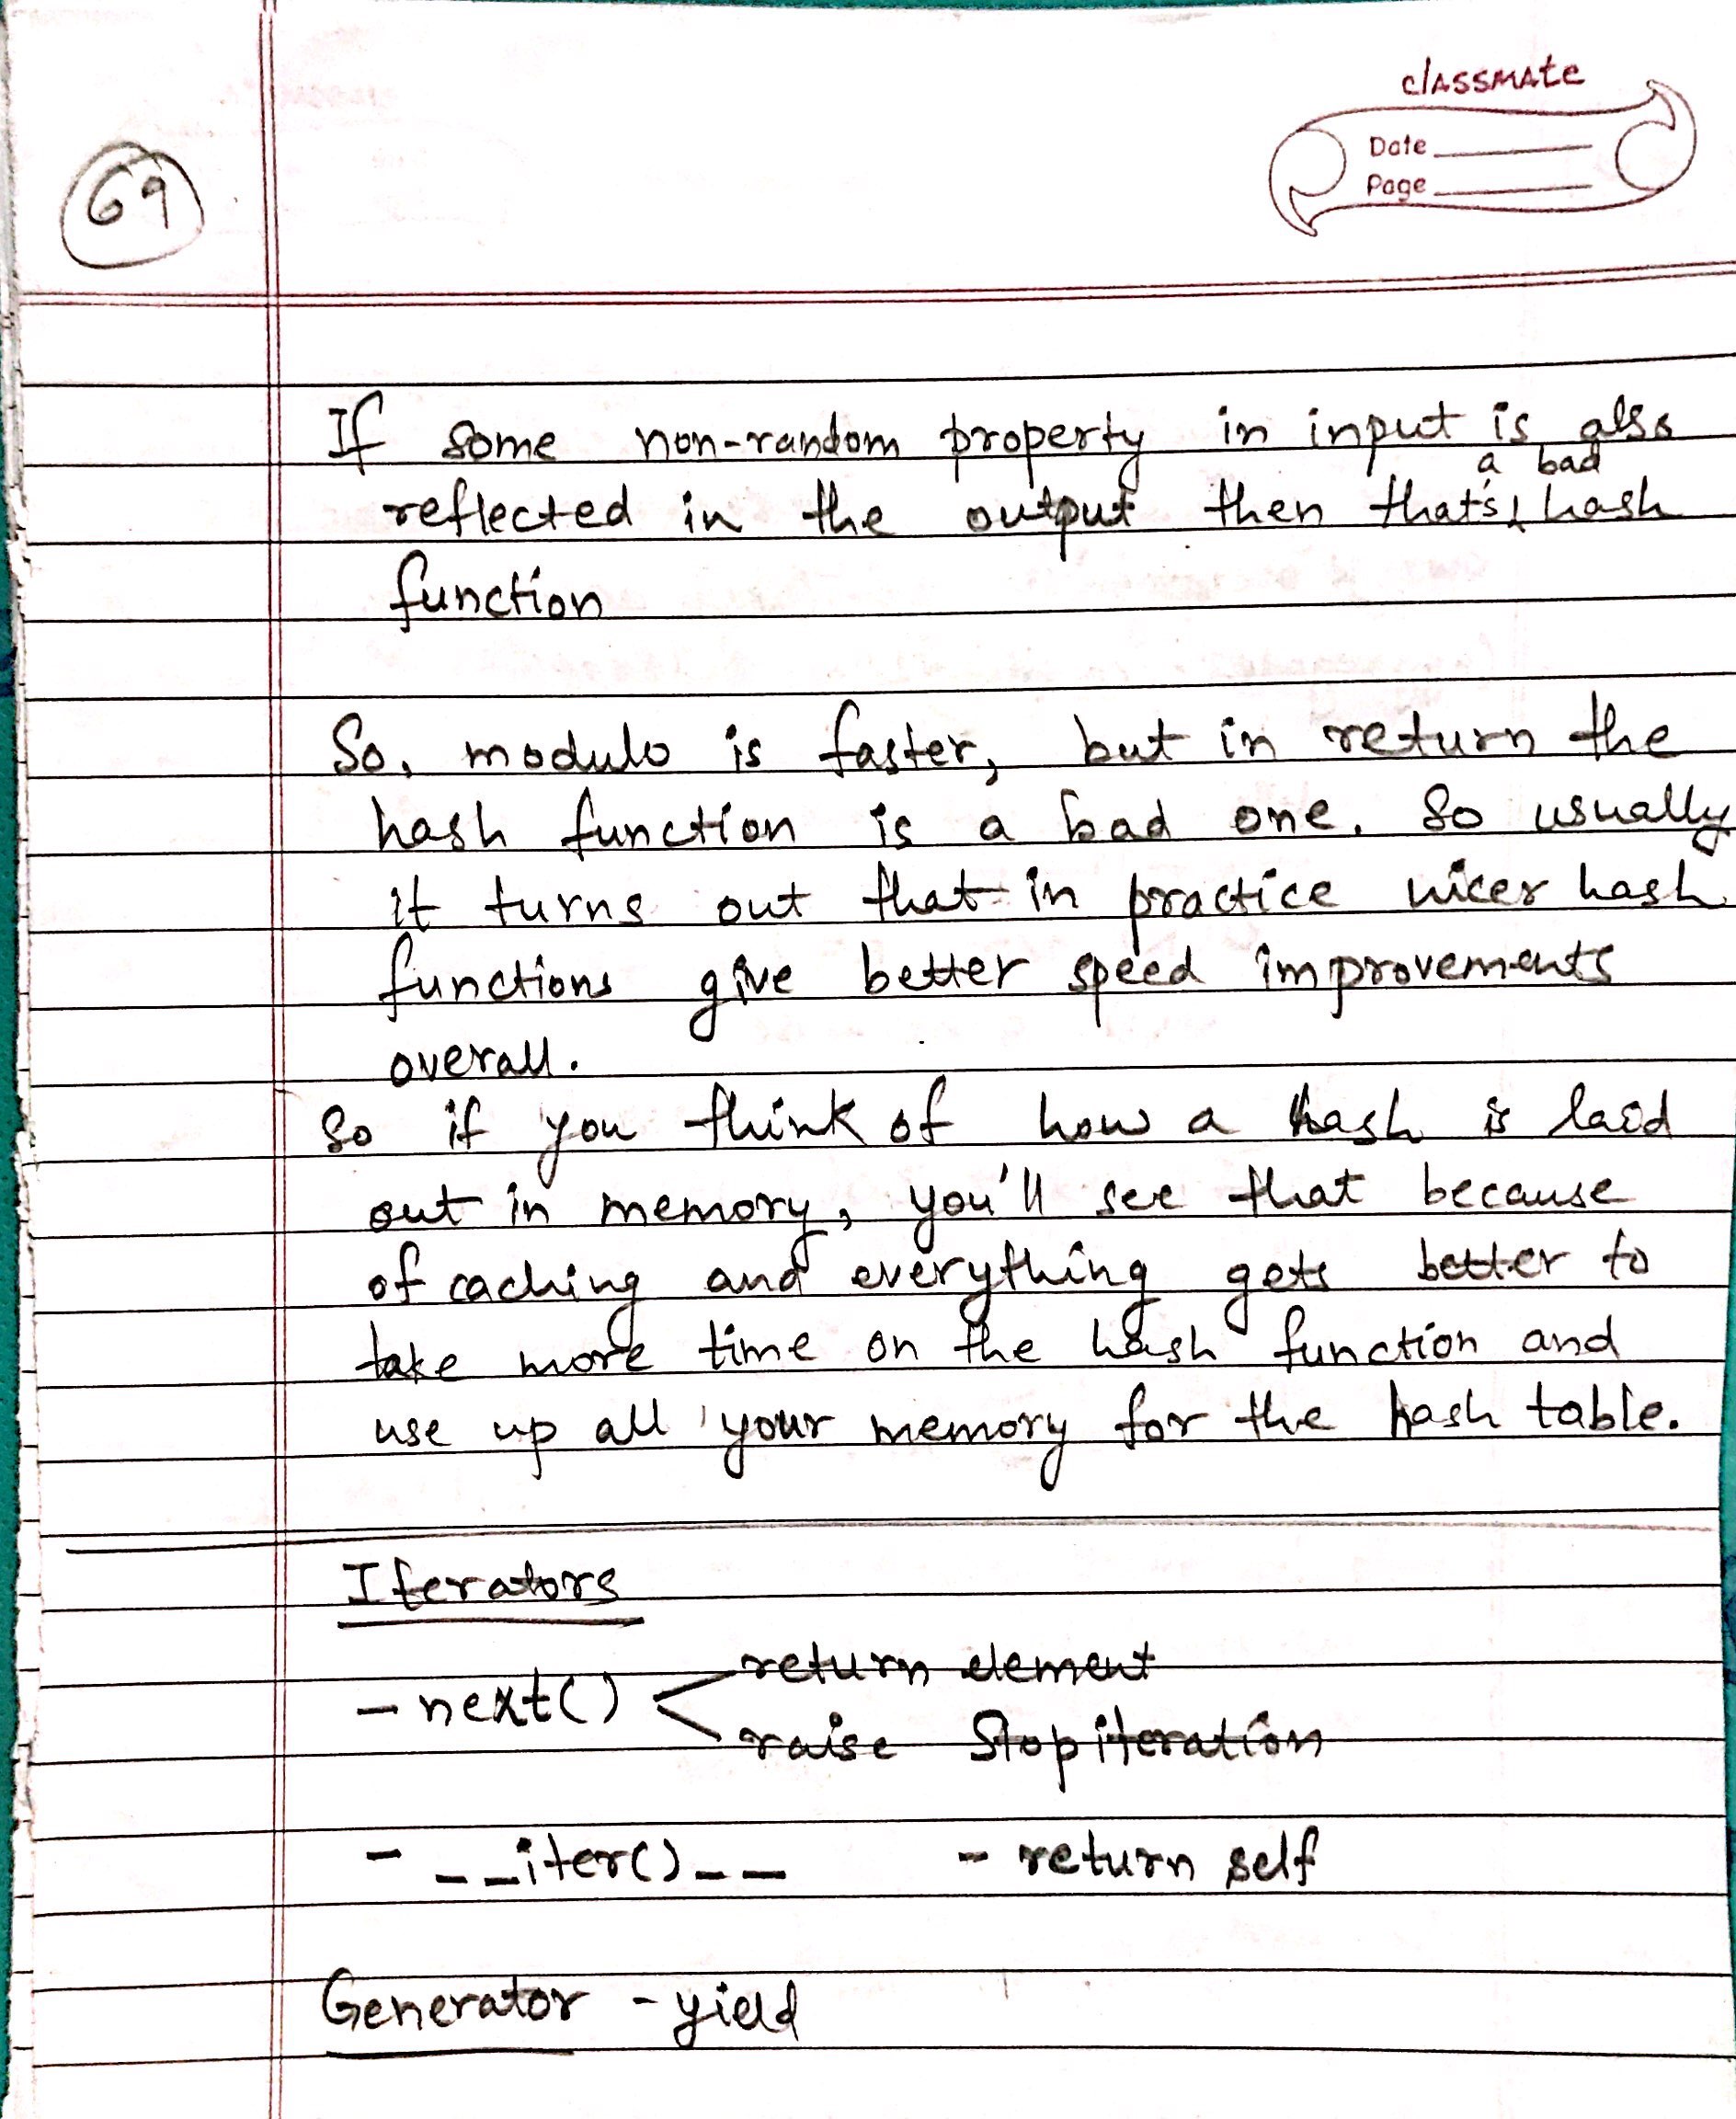 classmate
Date
Page
69
If some non-random property in input is also
reflected in the output then that's a bad hash
function
So, modulo is faster, but in return the
hash function is a bad one. So usually
it turns out that in practice nicer hash
functions give better speed improvements
overall.
So if you think of how a hash is laid
out in memory, you'll see that because
of caching and everything gets better to
take more time on the hash function and
use up all your memory for the hash table.
Iterators
- next() < return element
raise Stopiteration
- __iter()__ - return self
Generator - yield